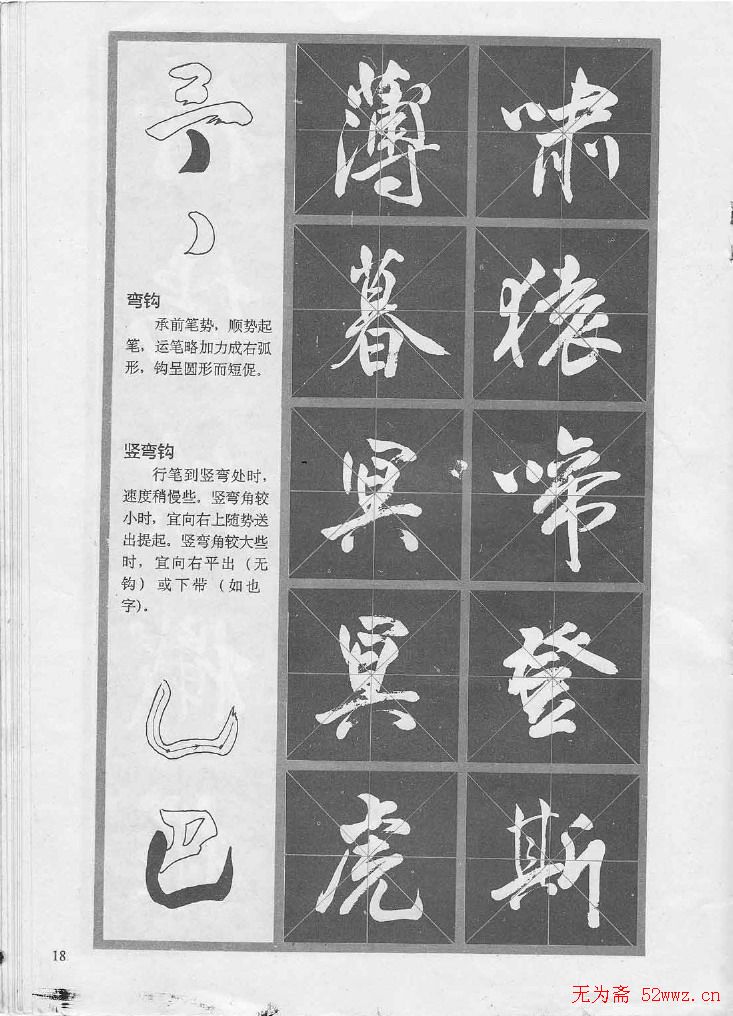 弯钩
承前笔势，顺势起
笔，运笔略加力成右弧
形，钩呈圆形而短促。
竖弯钩
行笔到竖弯处时，
速度稍慢些。竖弯角较
小时，宜向右上随势送
出提起。竖弯角较大些
时，宜向右平出（无
钩）或下带（如也
字）。
巴
薄暮冥冥虎
啸猿啼登斯
18
无为斋 52wwz.cn